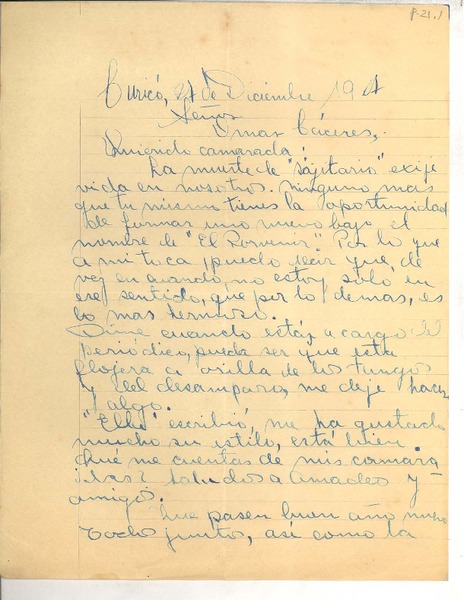 P-21.1
Curicó, 27 de Diciembre 19
Señor
Omar Cáceres,.
Querido camarada:
La muerte de "Sajitario" exije
vida en nosotros. Ninguno mas
que tu mismo tienes la oportunidad
de formar uno nuevo bajo el
nombre de "El Porvenir". Por lo que
a mi toca, puedo decir que, de
vez en cuando, no estoy solo en
ese sentido, que por lo demas, es
lo mas hermoso.
Dime cuando estás a cargo del
periódico, pueda ser que esta
flojera a orilla de los tungos
y del desamparo, me deje hacer
algo.
"Ella" escribió, me ha gustado
mucho su estilo, está bien
Qué me cuentas de mis camara
das? Saludos a Amadeo y
amigo.
Que pasen buen año nuevo
todos juntos, así como la